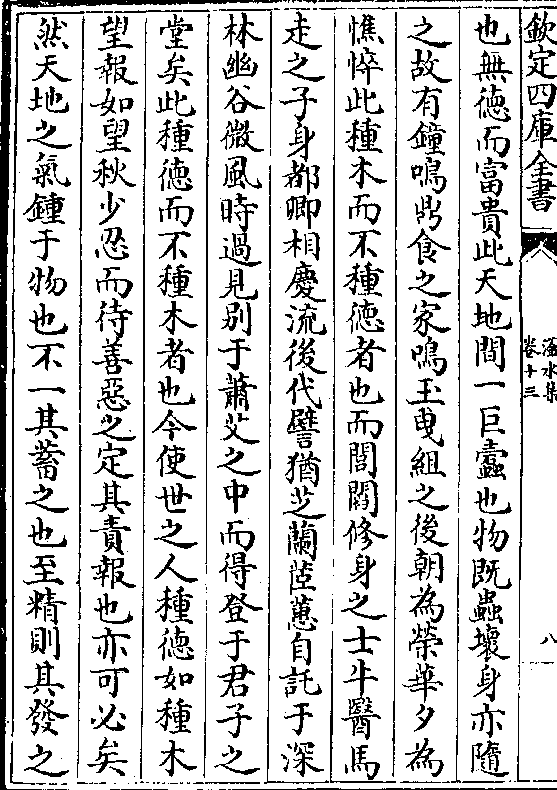 欽定四庫全書
滏水集
卷十三
八
也無德而富貴此天地間一巨蠹也物既蟲壞身亦隨
之故有鐘鳴鼎食之家鳴玉曳組之後朝為榮華夕為
憔悴此種木而不種德者也而閭閻修身之士牛醫馬
走之子身都卿相慶流後代譬猶芝蘭茝蕙自託于深
林幽谷微風時過見别于蕭艾之中而得登于君子之
堂矣此種德而不種木者也今使世之人種德如種木
望報如望秋少忍而待善惡之定其責報也亦可必矣
然天地之氣鍾于物也不一其蓄之也至精則其發之